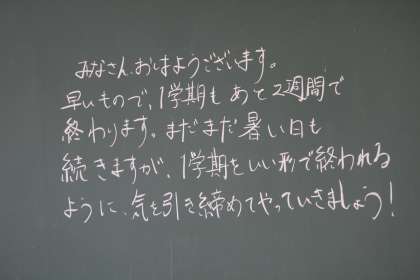 みなさん、おはようございます。
早いもので、1学期もあと2週間で
終わります。まだまだ暑い日も
続きますが、1学期をいい形で終われる
ように、気を引き締めてやっていきましょう!